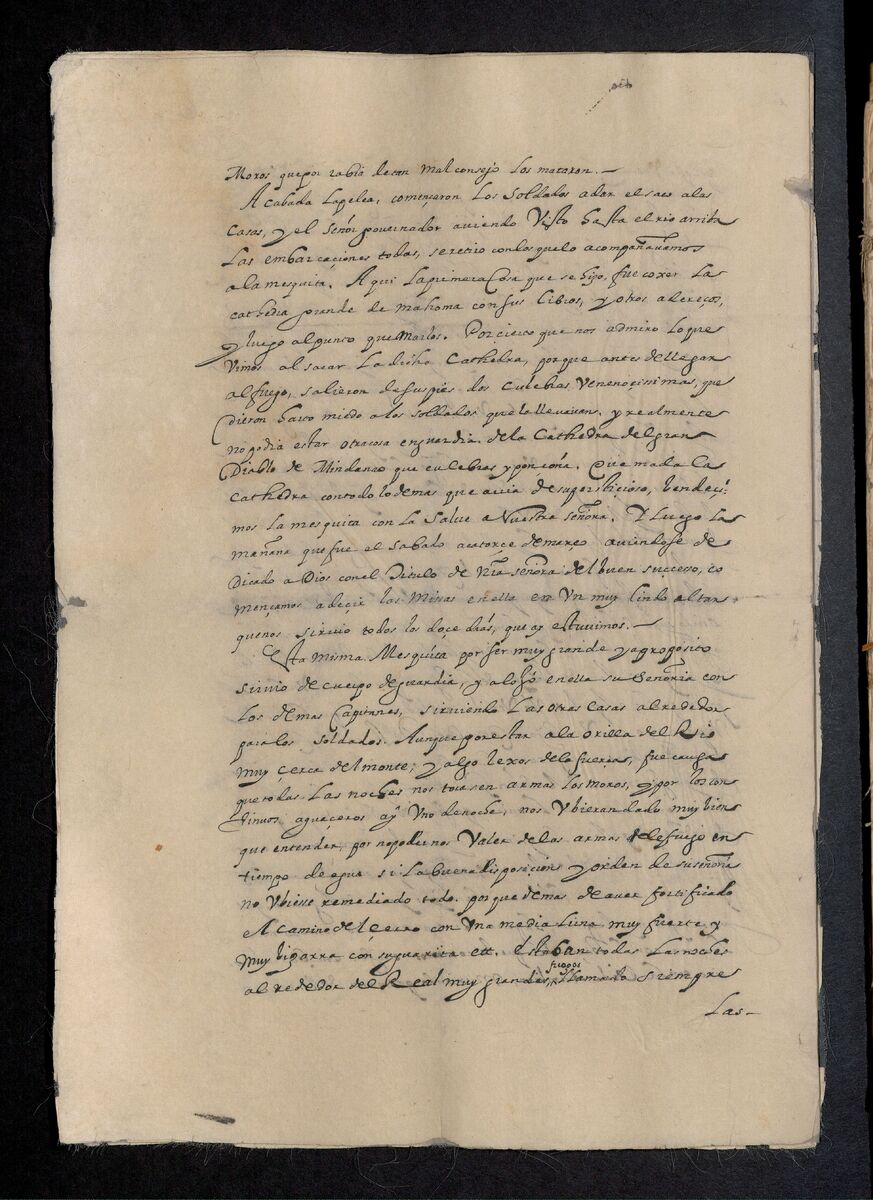 Moros que por rabia de tan mal consejo los mataron. —
Acabada la pelea, començaron los soldados a dar el saco a las
casas, y el señor governador aviendo visto hasta el rio arriba
las embarcaciones todas, se retiro con los que lo acompañavamos
a la mesquita. Aqui la primera cosa que se hiço, fue coxer la
cathedra grande de mahoma con sus libros, y otros adereços,
y luego al punto quemarlos. Por cierto que nos admiro lo que
vimos al sacar la dicha Cathedra, porque antes de llegar
al fuego, salieron de sus pies dos culebras venenocissimas, que
dieron harto miedo a los soldados que la llevavan, y realmente
no podia estar otra cosa en guardia de la Cathedra del gran
Diablo de Mindanao que culebras y ponçoña. Quemada la
cathedra con todo lo demas que avia de supersticioso, bendeci-
mos la mesquita con la Salve a Nuestra señora. Y luego la
mañana que fue el sabado a catorce de março aviendose de
Dicado a Dios con el Titulo de Nra señora del buen successo, co
mençamos a deçir las Missas en ella en un muy lindo altar
que nos sirvio todos los doçe dias, que ay estuvimos. —
Esta misma Mesquita por ser muy grande y a proposito
sirvio de cuerpo de guardia, y alojó en ella su señoria con
los demas Capitanes, sirviendo las otras casas al rededor
para los soldados. Aunque por estar a la orilla del Rio
muy çerca del monte, y algo lexos de la fuerça, fue causa
que todas las noches nos tocasen armas los moros, y por los con
tinuos aguaçeros ay uno de noche, nos ubieran dado muy bien
que entender, por no podernos valer de las armas de fuego en
tiempo de agua si la buena disposicion y orden de su señoria
no ubiera remediado todo. porque demas de aver fortificado
el camino del çerro con una media luna muy fuerte y
muy bigarra con su guarita ett. estaban todas las noches
al rededor del Real muy grandes fuegos llamando siempre
las —